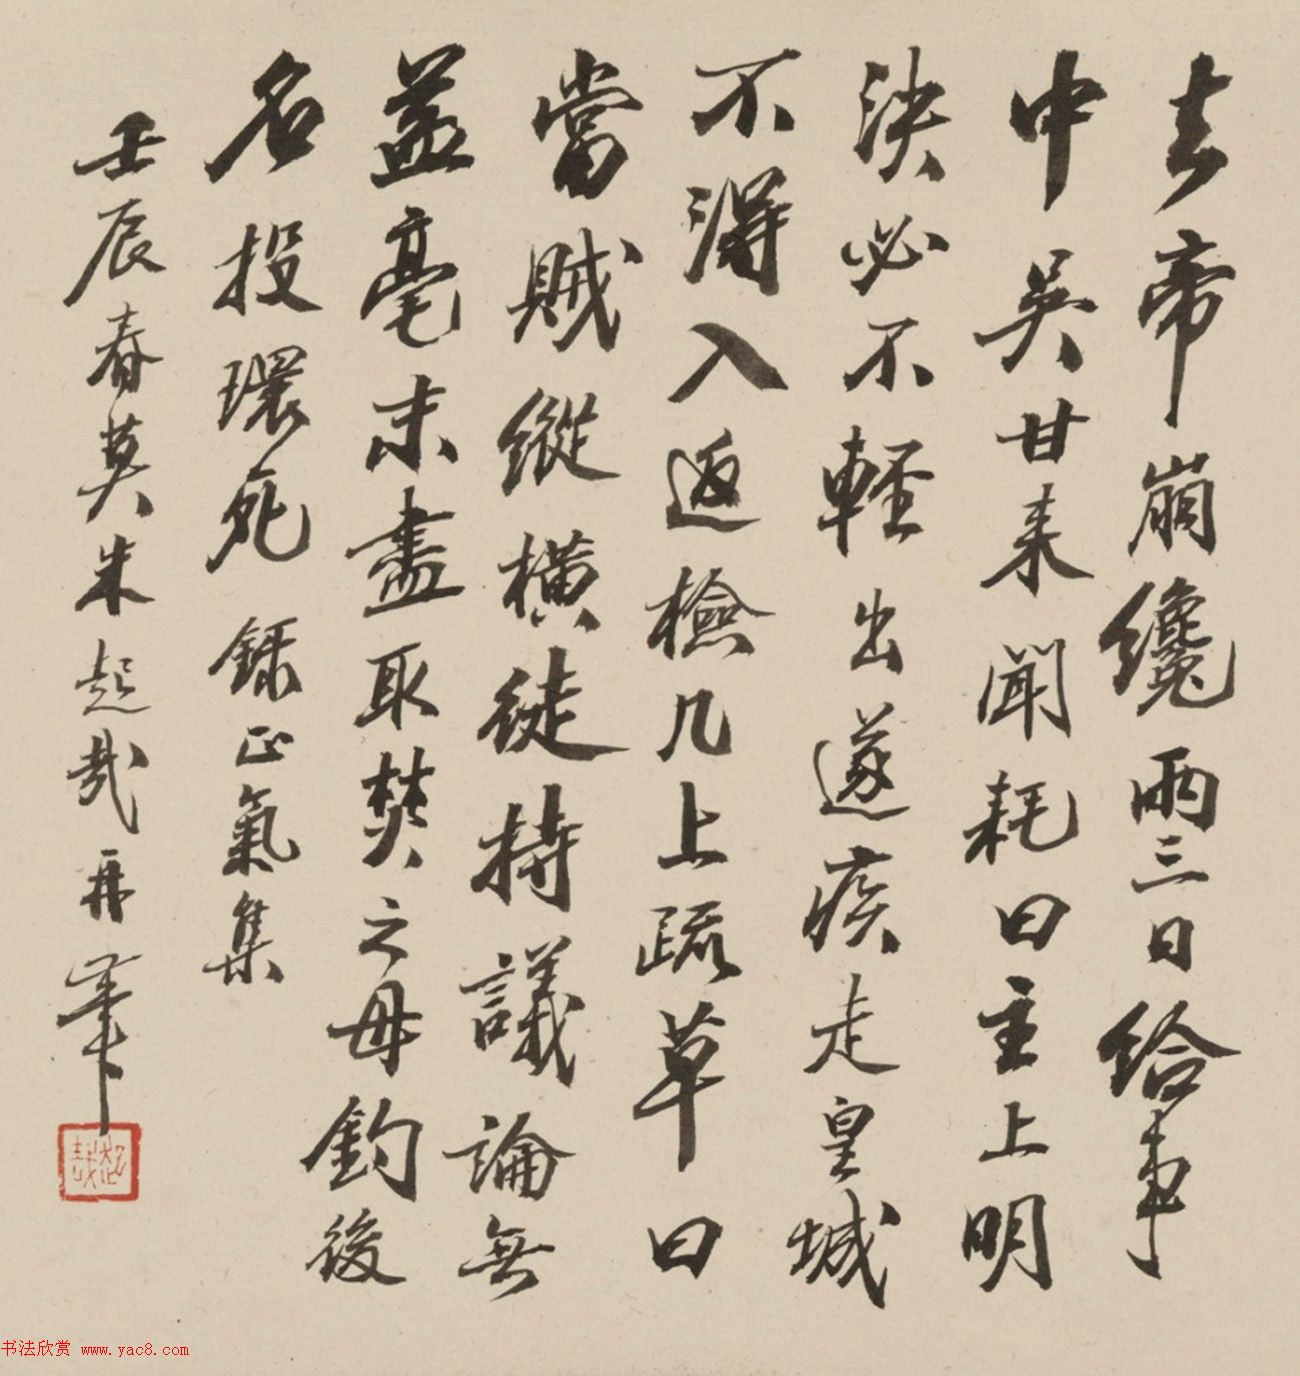 去帝崩纔兩三日給事
中吳甘来聞耗曰主上明
決必不輕出遂疾走皇城
不得入返檢几上疏草曰
當賊縱橫徒持議論無
益毫末盡取焚之毋釣後
名投環死 錄正氣集
壬辰春莫朱起哉弄筆
起哉
书法欣赏 www.yac8.com